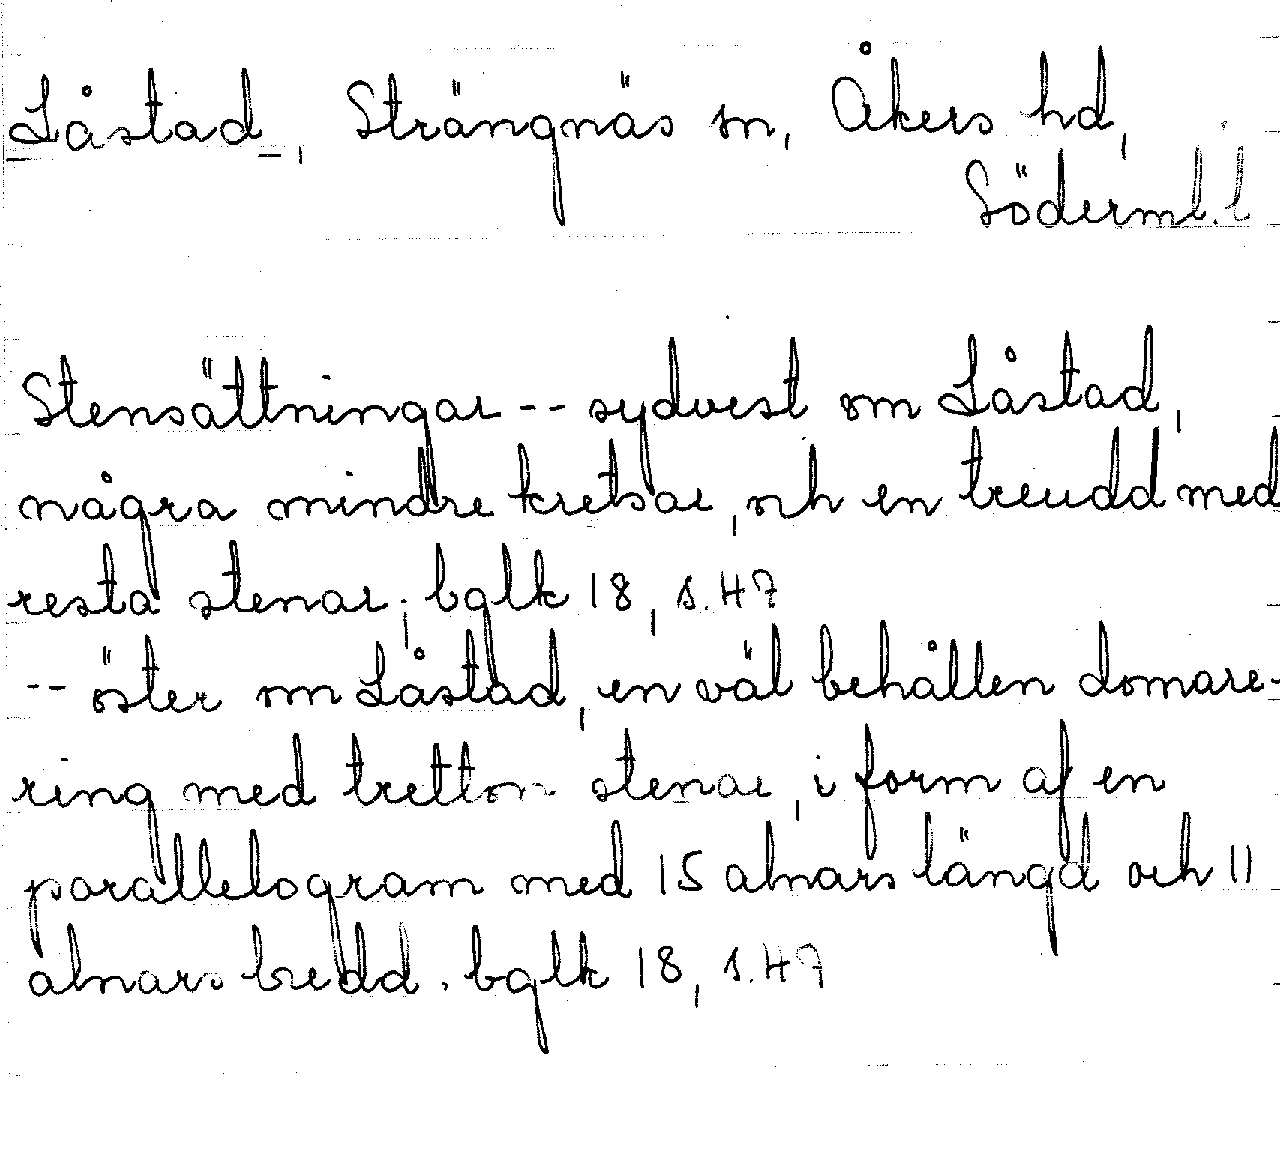 Låstad, Strängnäs sn, Åkers hd,
Söderml. l
Stensättningar -- sydvest om Låstad,
några mindre kretsar, och en treudd med
resta stenar; bglk 18, s. 47
-- öster om Låstad, en väl behållen domare-
ring med tretton stenar, i form af en
parallelogram med 15 alnars längd och 11
alnars bredd. bglk 18, s. 47